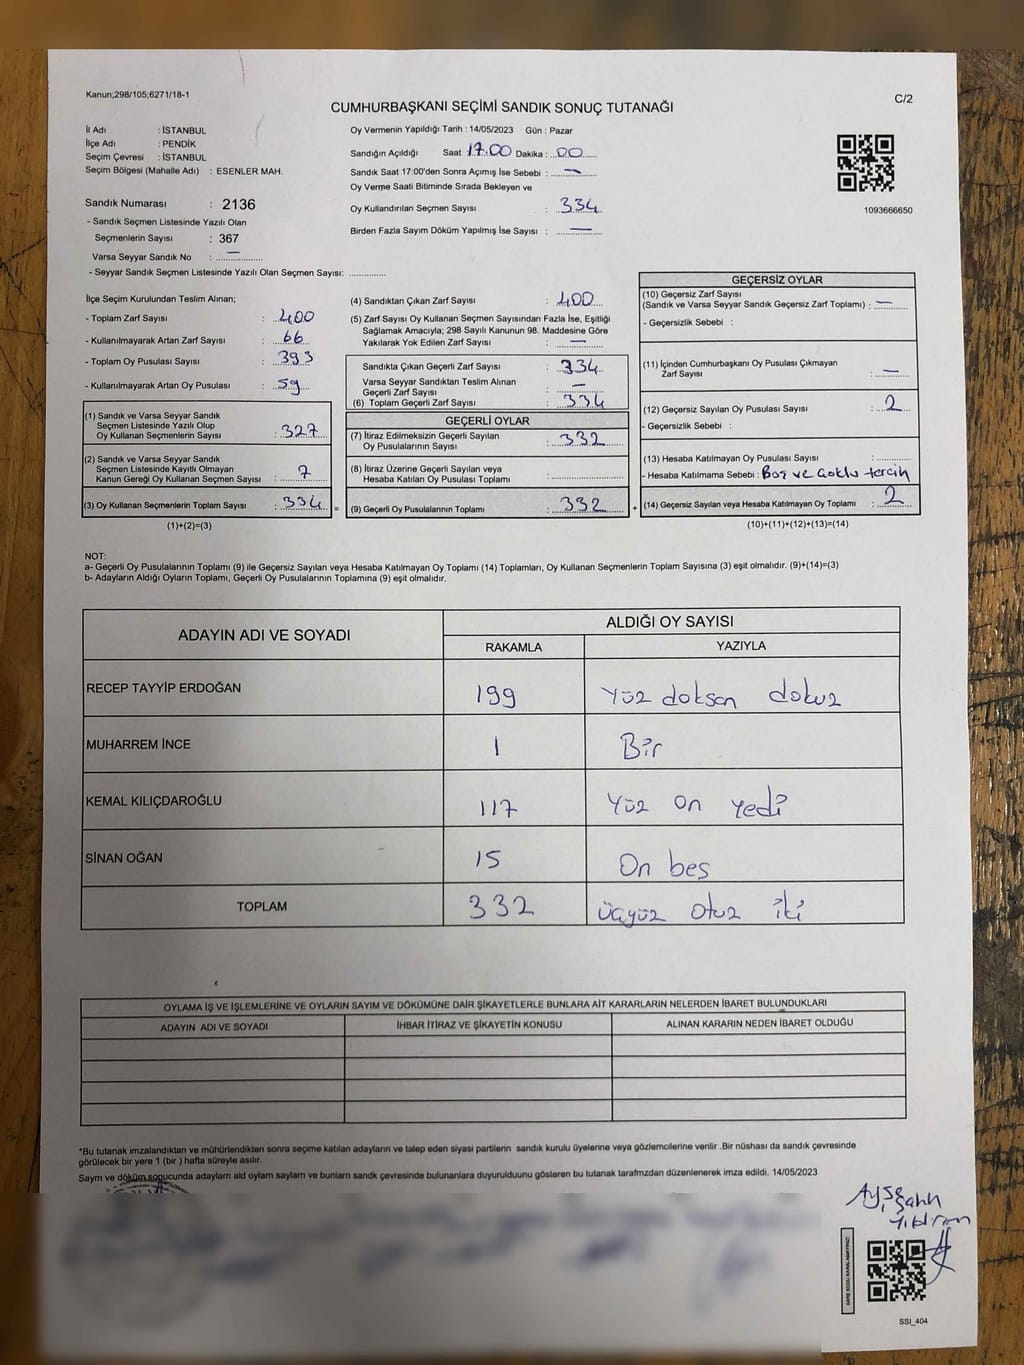 Kanun;298/105;6271/18-1
C/2
CUMHURBAŞKANI SEÇİMİ SANDIK SONUÇ TUTANAĞI
İl Adı : İSTANBUL
İlçe Adı : PENDİK
Seçim Çevresi : İSTANBUL
Seçim Bölgesi (Mahalle Adı) : ESENLER MAH.
Sandık Numarası : 2136
- Sandık Seçmen Listesinde Yazılı Olan
Seçmenlerin Sayısı : 367
Varsa Seyyar Sandık No : —
- Seyyar Sandık Seçmen Listesinde Yazılı Olan Seçmen Sayısı: ..............
Oy Vermenin Yapıldığı Tarih : 14/05/2023 Gün : Pazar
Sandığın Açıldığı Saat 17.00 Dakika : 00
Sandık Saat 17:00'den Sonra Açımış İse Sebebi : —
Oy Verme Saati Bitiminde Sırada Bekleyen ve
Oy Kullandırılan Seçmen Sayısı : 334
Birden Fazla Sayım Döküm Yapılmış İse Sayısı : —
1093666650
İlçe Seçim Kurulundan Teslim Alınan;
- Toplam Zarf Sayısı : 400
- Kullanılmayarak Artan Zarf Sayısı : 66
- Toplam Oy Pusulası Sayısı : 393
- Kullanılmayarak Artan Oy Pusulası : 59
(1) Sandık ve Varsa Seyyar Sandık
Seçmen Listesinde Yazılı Olup
Oy Kullanan Seçmenlerin Sayısı : 327
(2) Sandık ve Varsa Seyyar Sandık
Seçmen Listesinde Kayıtlı Olmayan
Kanun Gereği Oy Kullanan Seçmen Sayısı : 7
(3) Oy Kullanan Seçmenlerin Toplam Sayısı : 334 =
(1)+(2)=(3)
(4) Sandıktan Çıkan Zarf Sayısı : 400
(5) Zarf Sayısı Oy Kullanan Seçmen Sayısından Fazla İse, Eşitliği
Sağlamak Amacıyla; 298 Sayılı Kanunun 98. Maddesine Göre
Yakılarak Yok Edilen Zarf Sayısı : —
Sandıkta Çıkan Geçerli Zarf Sayısı : 334
Varsa Seyyar Sandıktan Teslim Alınan
Geçerli Zarf Sayısı : —
(6) Toplam Geçerli Zarf Sayısı : 334
GEÇERLİ OYLAR
(7) İtiraz Edilmeksizin Geçerli Sayılan
Oy Pusulalarının Sayısı : 332
(8) İtiraz Üzerine Geçerli Sayılan veya
Hesaba Katılan Oy Pusulası Toplamı : ..............
(9) Geçerli Oy Pusulalarının Toplamı : 332 +
GEÇERSİZ OYLAR
(10) Geçersiz Zarf Sayısı
(Sandık ve Varsa Seyyar Sandık Geçersiz Zarf Toplamı) : —
- Geçersizlik Sebebi :
(11) İçinden Cumhurbaşkanı Oy Pusulası Çıkmayan
Zarf Sayısı : —
(12) Geçersiz Sayılan Oy Pusulası Sayısı : 2
- Geçersizlik Sebebi :
(13) Hesaba Katılmayan Oy Pusulası Sayısı : ..............
- Hesaba Katılmama Sebebi : Boş ve Çoklu tercih
(14) Geçersiz Sayılan veya Hesaba Katılmayan Oy Toplamı : 2
(10)+(11)+(12)+(13)=(14)
NOT:
a- Geçerli Oy Pusulalarının Toplamı (9) ile Geçersiz Sayılan veya Hesaba Katılmayan Oy Toplamı (14) Toplamları, Oy Kullanan Seçmenlerin Toplam Sayısına (3) eşit olmalıdır. (9)+(14)=(3)
b- Adayların Aldığı Oyların Toplamı, Geçerli Oy Pusulalarının Toplamına (9) eşit olmalıdır.
ADAYIN ADI VE SOYADI ALDIĞI OY SAYISI
RAKAMLA YAZIYLA
RECEP TAYYİP ERDOĞAN 199 Yüz doksan dokuz
MUHARREM İNCE 1 Bir
KEMAL KILIÇDAROĞLU 117 Yüz on yedi
SİNAN OĞAN 15 On beş
TOPLAM 332 üçyüz otuz iki
OYLAMA İŞ VE İŞLEMLERİNE VE OYLARIN SAYIM VE DÖKÜMÜNE DAİR ŞİKAYETLERLE BUNLARA AİT KARARLARIN NELERDEN İBARET BULUNDUKLARI
ADAYIN ADI VE SOYADI İHBAR İTİRAZ VE ŞİKAYETİN KONUSU ALINAN KARARIN NEDEN İBARET OLDUĞU
*Bu tutanak imzalandıktan ve mühürlendikten sonra seçime katılan adayların ve talep eden siyasi partilerin sandık kurulu üyelerine veya gözlemcilerine verilir .Bir nüshası da sandık çevresinde
görülecek bir yere 1 (bir ) hafta süreyle asılır.
Sayım ve döküm sonucunda adayların ald oylam saylam ve bunların sandk çevresinde bulunanlara duyurulduunu gösteren bu tutanak tarafmzdan düzenlenerek imza edildi. 14/05/2023
Ayşe Şahin
Yıldırım
KARE KODU KARALAMAYINIZ!
SSI_404